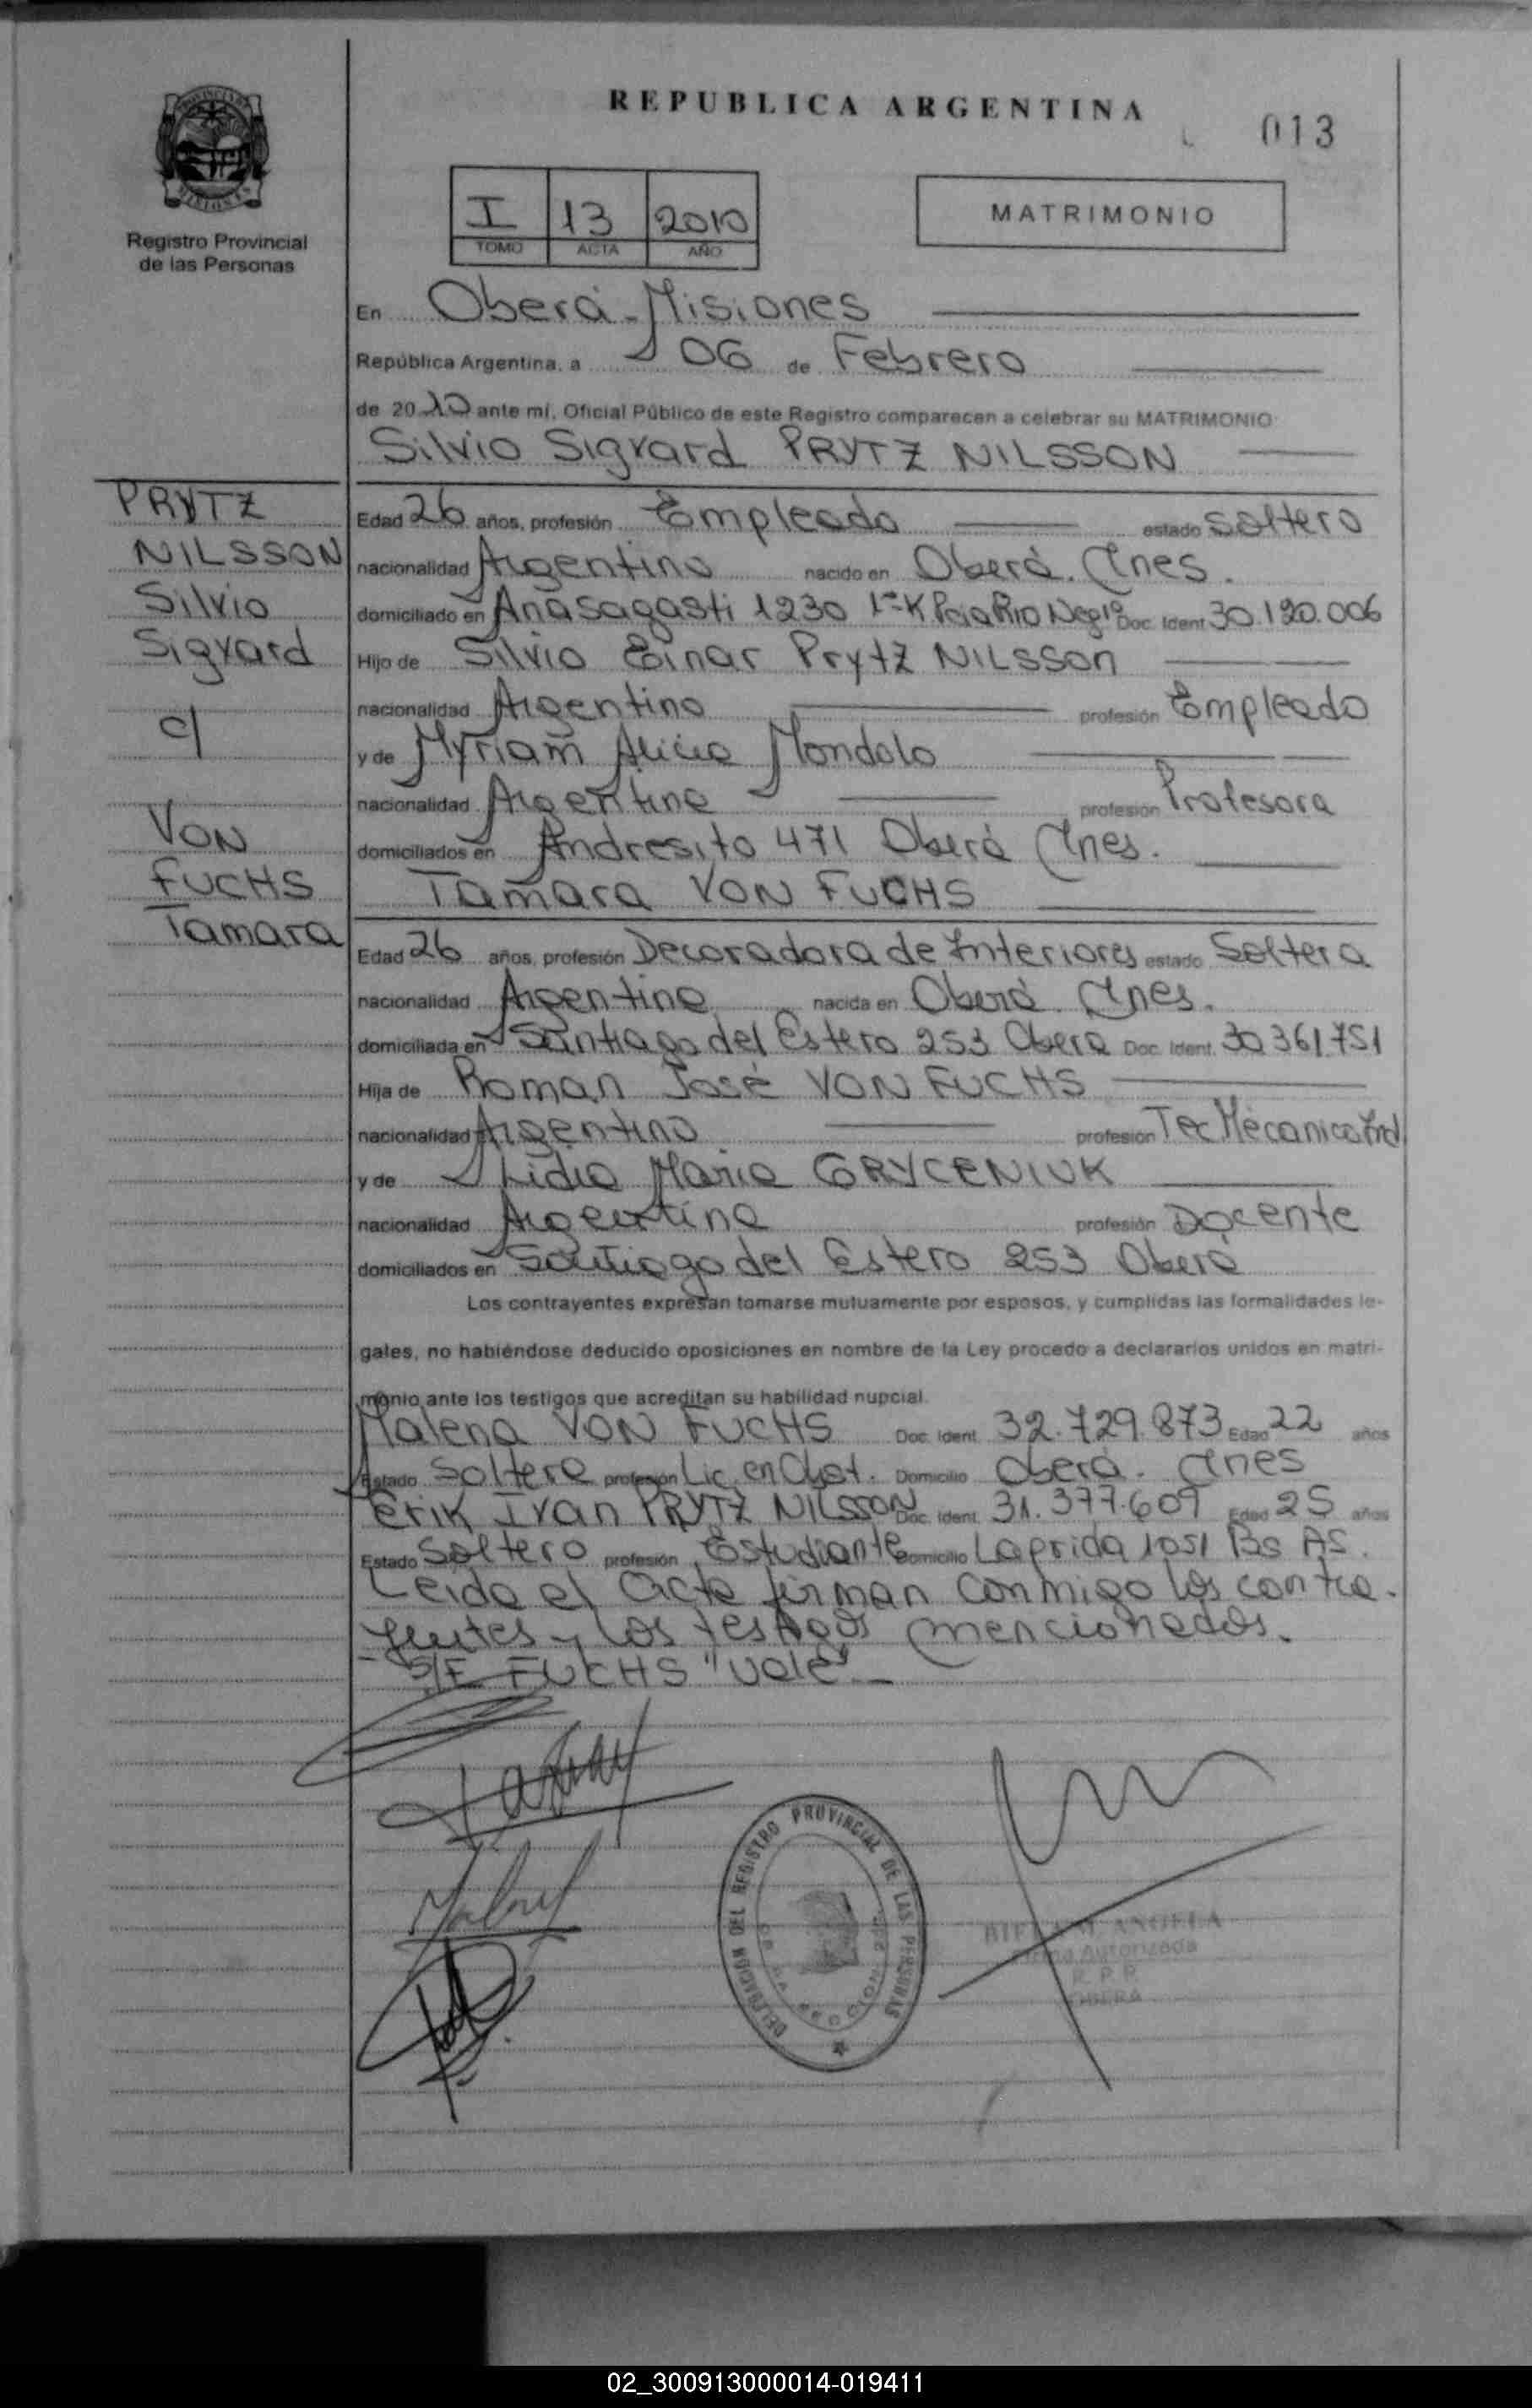 REPUBLICA ARGENTINA
013
Registro Provincial
de las Personas
I 13 2010
TOMO ACTA AÑO
MATRIMONIO
En Oberá - Misiones
República Argentina, a 06 de Febrero
de 2010 ante mí, Oficial Público de este Registro comparecen a celebrar su MATRIMONIO
Silvio Sigvard PRYTZ NILSSON
PRYTZ
NILSSON
Silvio
Sigvard
c/
VON
FUCHS
Tamara
Edad 26 años, profesión Empleado estado Soltero
nacionalidad Argentino nacido en Oberá. Mnes.
domiciliado en Anasagasti 1230 1º K Pcia Rio Negro Doc. Ident 30.120.006
Hijo de Silvio Einar Prytz NILSSON
nacionalidad Argentino profesión Empleado
y de Myriam Alicia Mondolo
nacionalidad Argentina profesión Profesora
domiciliados en Andresito 471 Oberá Mnes.
Tamara VON FUCHS
Edad 26 años, profesión Decoradora de Interiores estado Soltera
nacionalidad Argentina nacida en Oberá. Mnes.
domiciliada en Santiago del Estero 253 Oberá Doc. Ident. 30.361.751
Hija de Roman José VON FUCHS
nacionalidad Argentino profesión Tec Mecanico Ind.
y de Lidia Maria GRYCENIUK
nacionalidad Argentina profesión Docente
domiciliados en Santiago del Estero 253 Oberá
Los contrayentes expresan tomarse mutuamente por esposos, y cumplidas las formalidades le-
gales, no habiéndose deducido oposiciones en nombre de la Ley procedo a declararlos unidos en matri-
monio ante los testigos que acreditan su habilidad nupcial.
Malena VON FUCHS Doc. Ident. 32.729.873 Edad 22 años
Estado Soltera profesión Lic. en Obst. Domicilio Oberá. Mnes
Erik Ivan PRYTZ NILSSON Doc. Ident. 31.377.609 Edad 25 años
Estado Soltero profesión Estudiante Domicilio Laprida 1051 Bs AS.
Leida el Acta firman conmigo los contra-
yentes y los testigos mencionados.
- S/E FUCHS "Vale" -
DELEGACION DEL REGISTRO PROVINCIAL DE LAS PERSONAS
ANGELA
Autorizada
R. P. P.
OBERA
02_300913000014-019411